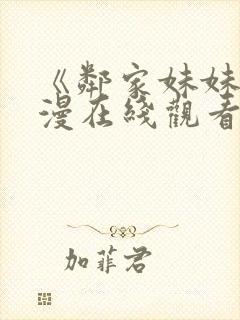 《鄰家妹妹
漫在綫觀看
加菲君